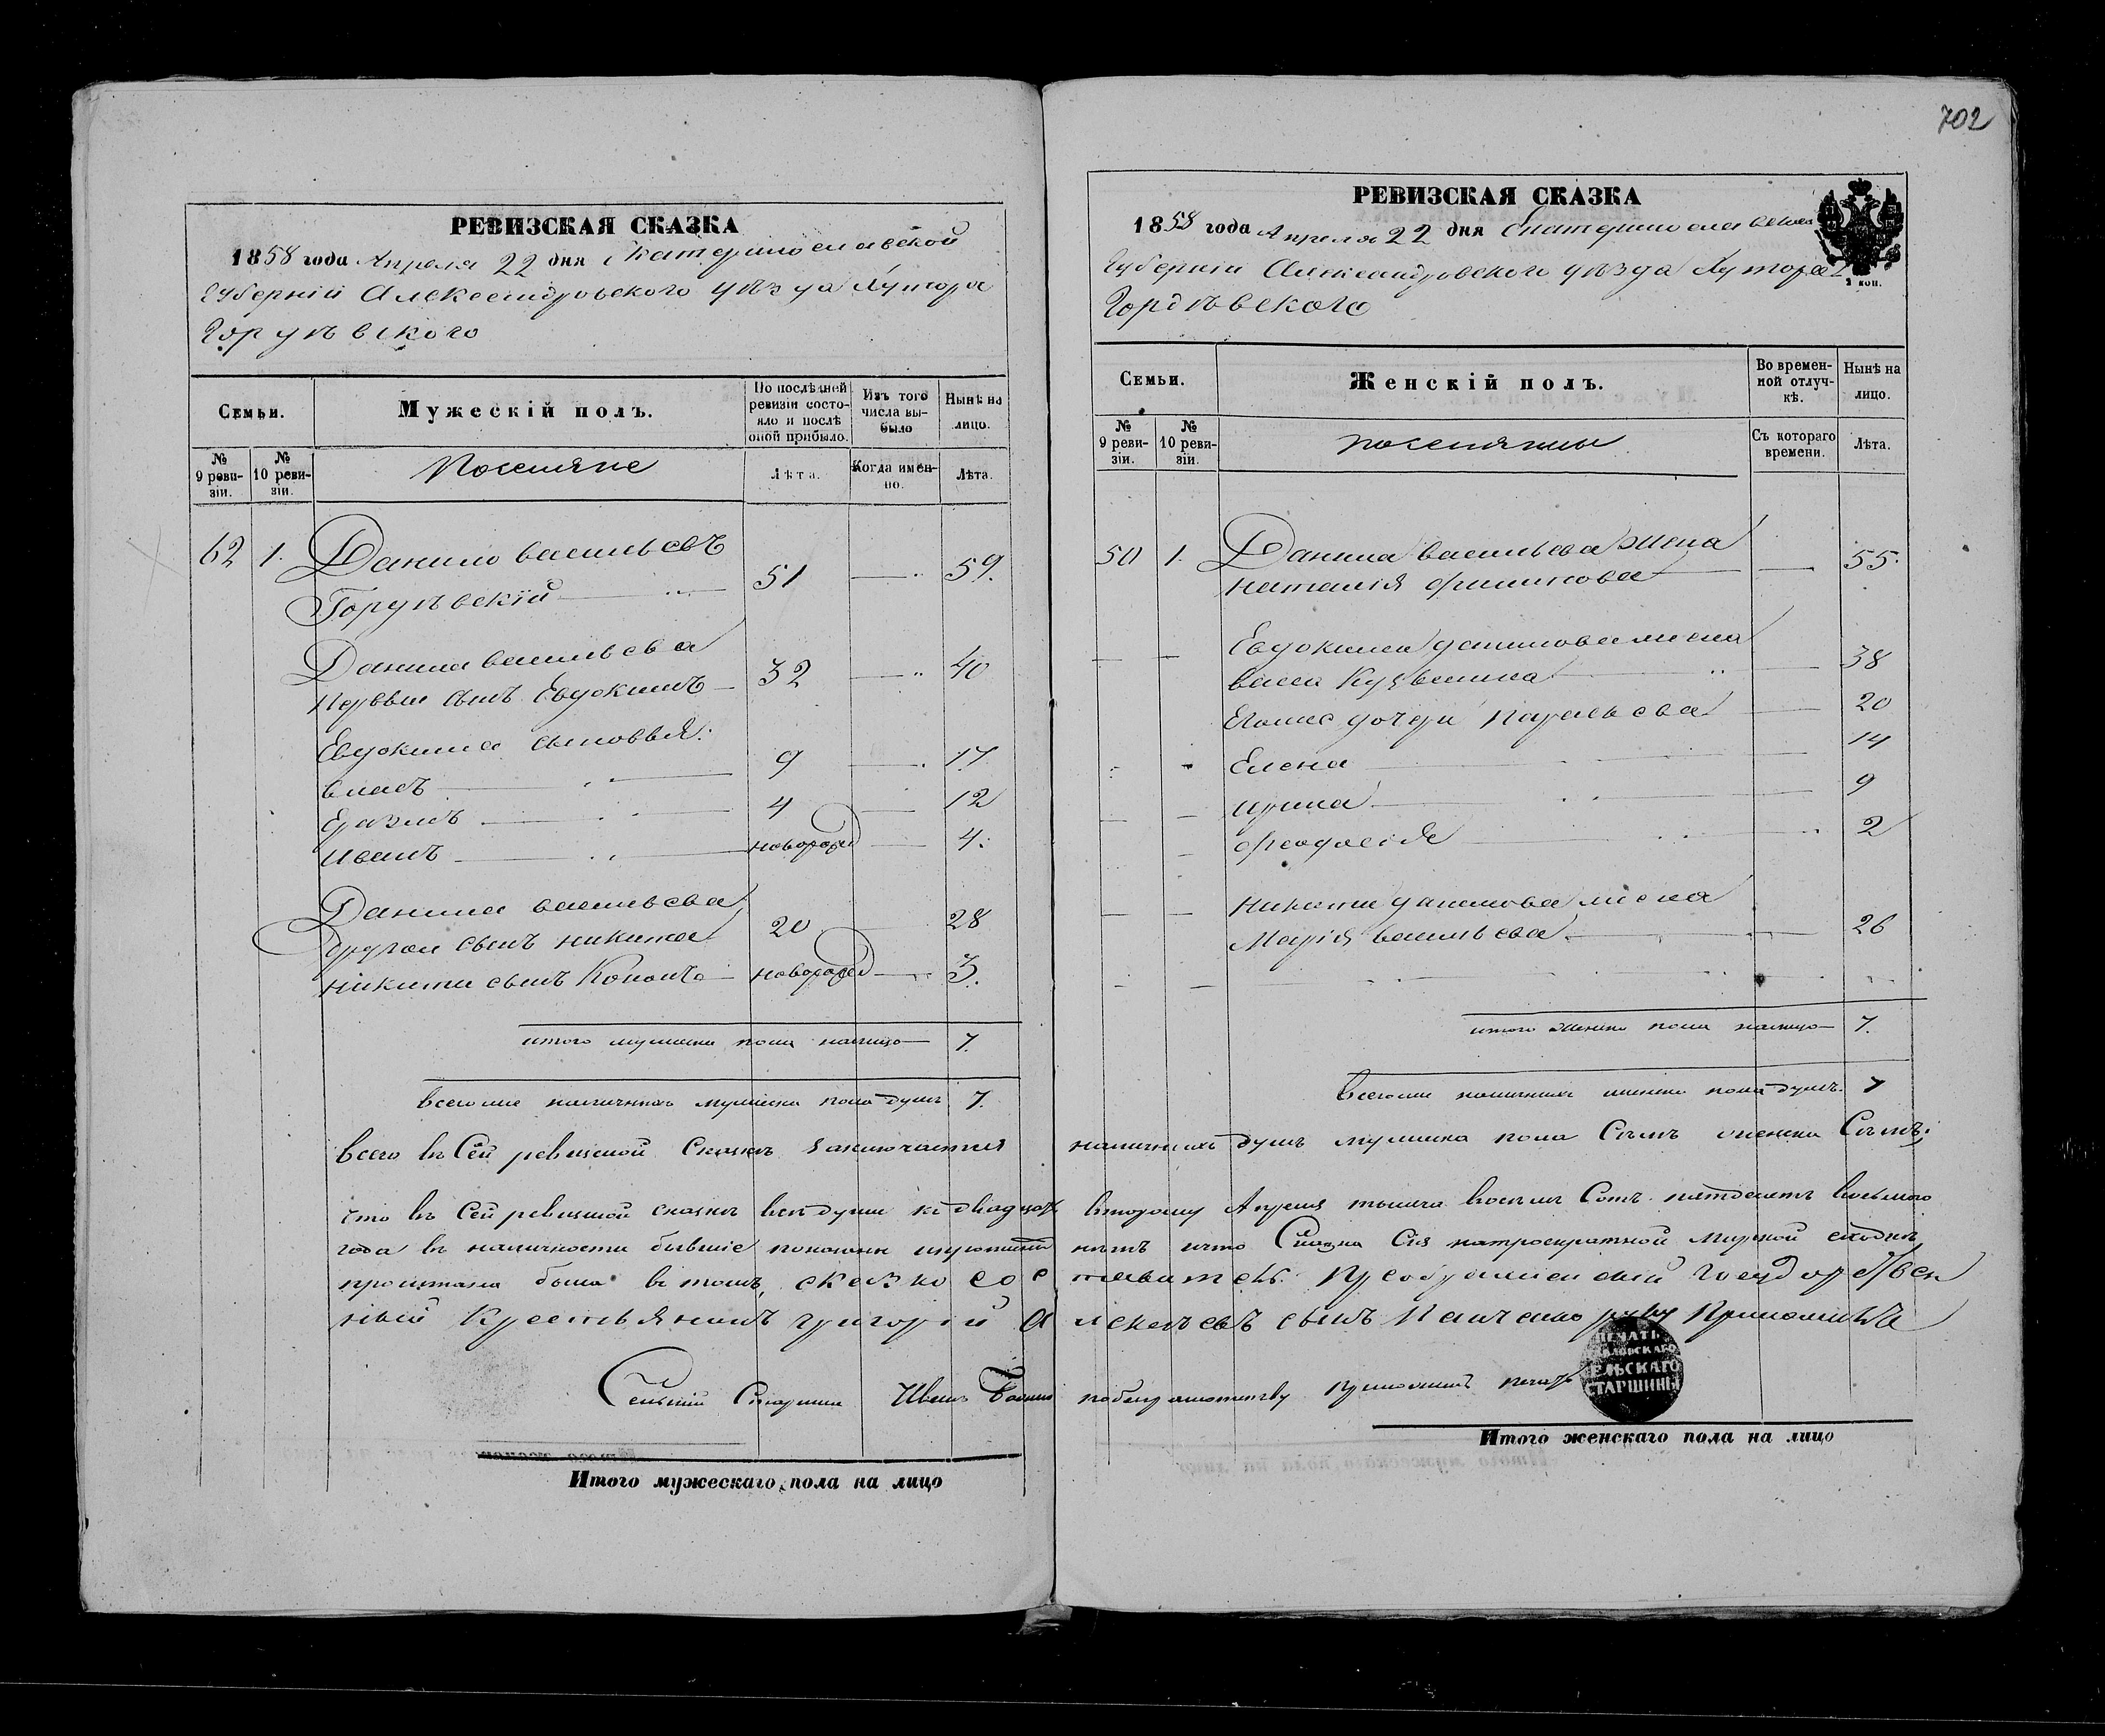 702
РЕВИЗСКАЯ СКАЗКА
1858 года Апреля 22 дня Екатеринославской
Губерніи Александровского уѣзда Хутора
Гордѣевского
Семьи.
Мужескій полъ.
По послѣдней ревизіи состояло и послѣ оной прибыло.
Изъ того числа выбыло
Нынѣ на лицо.
№ 9 ревизіи.
№ 10 ревизіи.
Поселяне
Лѣта.
Когда именно.
Лѣта.
62 1. Данило васильевъ
Гордѣевскій 51 59.
Данила васильева
Первый сынъ Евдокимъ 32 40
Евдокима сыновья:
власъ 9 17
Еразмъ 4 12
Иванъ новорожд 4.
Данила васильева
другой сынъ никита 20 28
никиты сынъ Кононъ новорожд 3.
итого мужеска пола налицо 7.
всего же наличныхъ мужеска пола душъ 7.
РЕВИЗСКАЯ СКАЗКА
1858 года Апреля 22 дня Екатеринославской
Губерніи Александровского уѣзда Хутора
Гордѣевского
Семьи.
Женскій полъ.
Во временной отлучкѣ.
Нынѣ на лицо.
№ 9 ревизіи.
№ 10 ревизіи.
поселянки
Съ котораго времени.
Лѣта.
50 1. Данила васильева жена
наталія филипова 55.
Евдокима данилова жена
васса Кузьмина 38
Его же дочери 20
Елена 14
ирина 9
феодосія 2
никиты данилова жена
Марія васильева 26
итого женска пола налицо 7.
всего же наличныхъ женска пола душъ 7
всего въ Сей ревизской Сказкѣ заключается наличныхъ душъ мужеска пола Семъ женска Семъ.
что въ Сей ревизской сказкѣ всѣ души къ двадцать второму Апреля тысяча восемь Сотъ пятдесятъ восьмого
года въ наличности бывшіе показаны нѣтъ и что Сказка Сія на мирской сходкѣ
прочитана была въ томъ, сказкосоставитель. Преображенскій Государствен
ный Крестьянинъ григорій алексѣевъ сынъ руку Приложилъ
Сельскій Старшина Иванъ приложилъ печать
ПЕЧАТЬ
СЕЛЬСКАГО
СТАРШИНЫ
Итого мужескаго пола на лицо
Итого женскаго пола на лицо